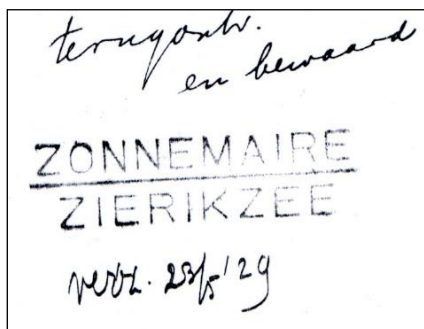 terugontv.
en bewaard
ZONNEMAIRE
ZIERIKZEE
verz. 23/5 '29